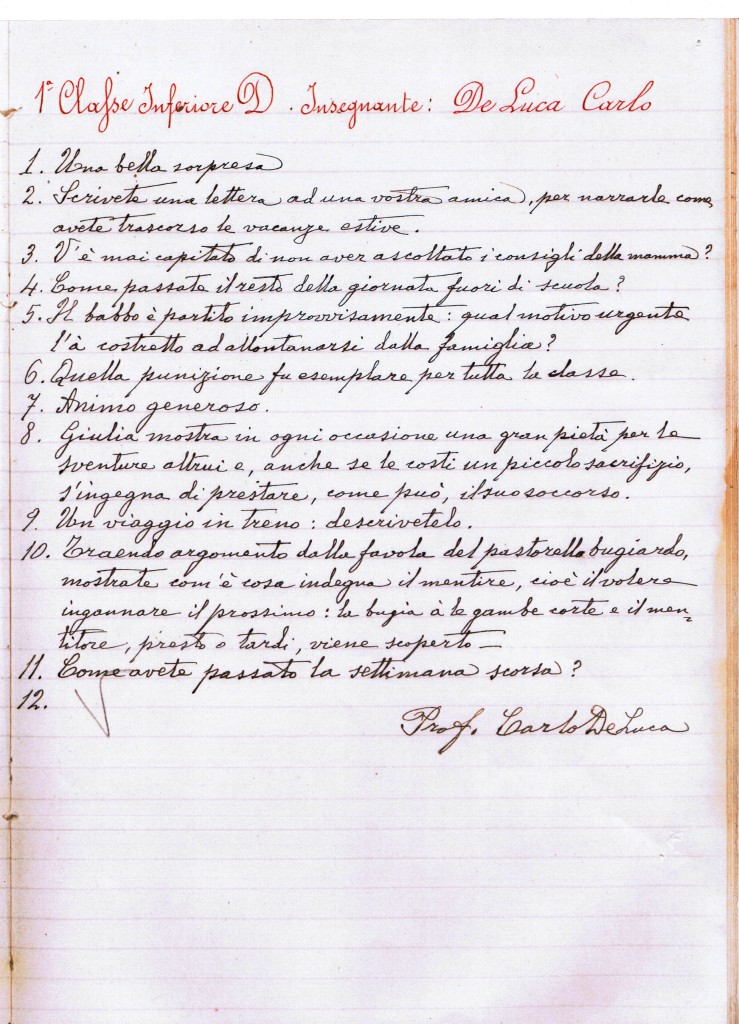 1ª Classe Inferiore D. Insegnante: De Luca Carlo
1. Una bella sorpresa
2. Scrivete una lettera ad una vostra amica, per narrarle come
avete trascorso le vacanze estive.
3. V'è mai capitato di non aver ascoltato i consigli della mamma?
4. Come passate il resto della giornata fuori di scuola?
5. Il babbo è partito improvvisamente: qual motivo urgente
l'à costretto ad allontanarsi dalla famiglia?
6. Quella punizione fu esemplare per tutta la classe.
7. Animo generoso.
8. Giulia mostra in ogni occasione una gran pietà per le
sventure altrui e, anche se le costi un piccolo sacrifizio,
s'ingegna di prestare, come può, il suo soccorso.
9. Un viaggio in treno: descrivetelo.
10. Traendo argomento dalla favola del pastorello bugiardo,
mostrate com'è cosa indegna il mentire, cioè il volere
ingannare il prossimo: la bugia à le gambe corte e il men=
titore, presto o tardi, viene scoperto —
11. Come avete passato la settimana scorsa?
12.
Prof. Carlo De Luca